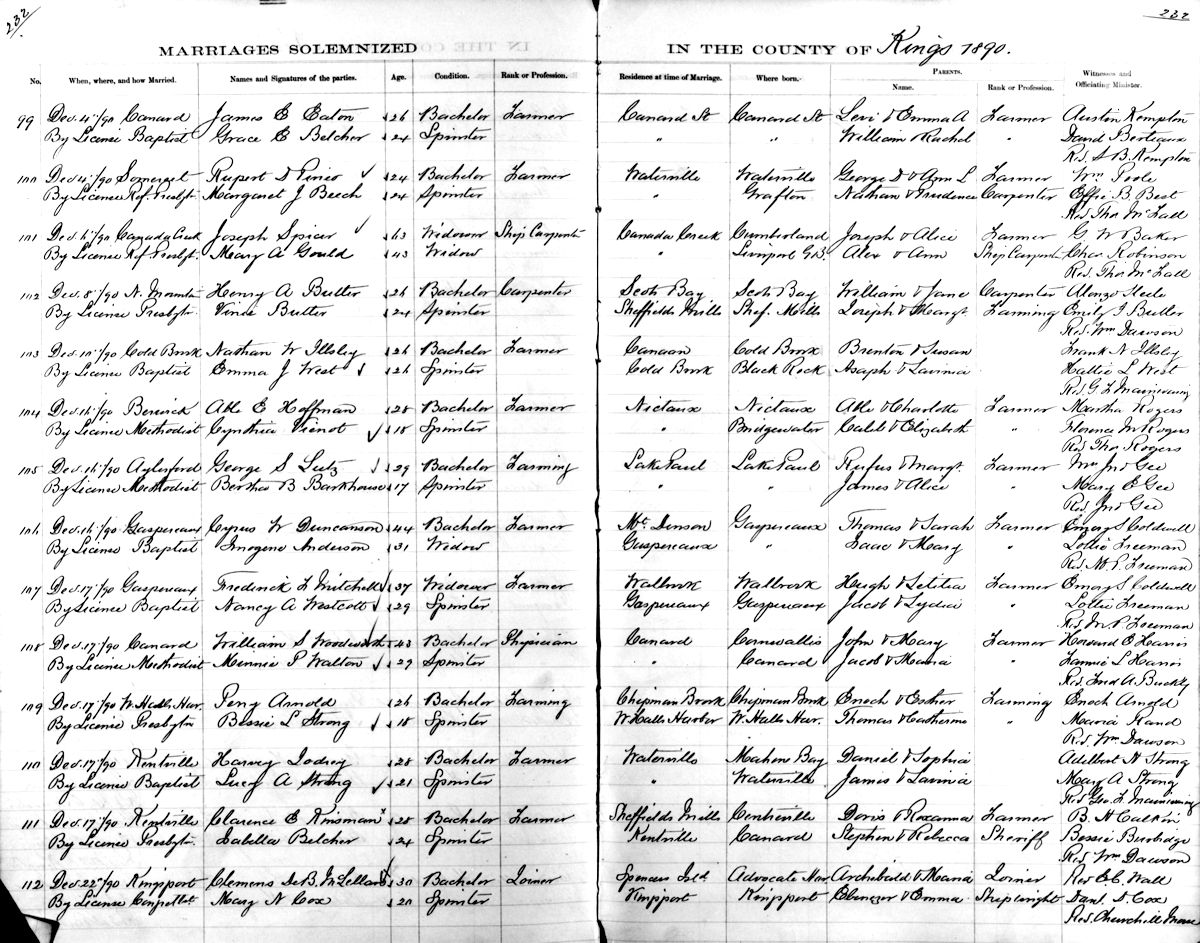 232
232
MARRIAGES SOLEMNIZED IN THE COUNTY OF Kings 1890.
No. When, where, and how Married. Names and Signatures of the parties. Age. Condition. Rank or Profession. Residence at time of Marriage. Where born. PARENTS. Name. Rank or Profession. Witnesses and Officiating Minister.
99 Dec. 4"/90 Canard James E Eaton 26 Bachelor Farmer Canard St Canard St Levi & Emma A Farmer Austin Kempton
By License Baptist Grace E Belcher 24 Spinster " " William Rachel David Berteaux
Rev. S B. Kempton
100 Dec 4"/90 Somerset Rupert D Pineo 24 Bachelor Farmer Waterville Waterville George D & Ann L Farmer Wm Poole
By License Ref. Presbt. Margaret J Beech 24 Spinster " Grafton Nathan & Prudence Carpenter Effie B. Best
Rev. Thos McFall
101 Dec 6"/90 Canada Creek Joseph Spicer 63 Widower Ship Carpenter Canada Creek Cumberland Joseph & Alice Farmer G W Baker
By License Ref Presbt. Mary A Gould 43 Widow " Liverpool G.B. Alex & Ann Ship Carpent Chas Robinson
Rev. Thos McFall
102 Dec. 8"/90 N. Mountn Henry A Butler 26 Bachelor Carpenter Scots Bay Scots Bay William & Jane Carpenter Alonzo Steele
By License Presbytn. Vinie Butler 24 Spinster Sheffields Mills Shef. Mills Joseph & Margt Farming Emily J Butler
Rev. Wm Dawson
103 Dec. 10"/90 Cold Brook Nathan W Illsley 26 Bachelor Farmer Canaan Cold Brook Brenton & Susan Frank N Illsley
By License Baptist Emma J West 26 Spinster Cold Brook Black Rock Asaph & Lavinia Hattie L West
Rev. G L
104 Dec. 16"/90 Berwick Able E Hoffman 28 Bachelor Farmer Nictaux Nictaux Able & Charlotte Farmer Martha Rogers
By License Methodist Cynthia Vienot 18 Spinster " Bridgewater Caleb & Elizabeth " Florence M Rogers
Rev. Thos. Rogers
105 Dec. 16"/90 Aylesford George S Lutz 29 Bachelor Farming Lake Paul Lake Paul Rufus & Margt. Farmer Mrs Jno Gee
By License Methodist Bertha B Barkhouse 17 Spinster " " James & Alice " Mary E Gee
Rev. Jno Gee
106 Dec. 16"/90 Gaspereaux Cyrus W Duncanson 44 Bachelor Farmer Mt. Denson Gaspereaux Thomas & Sarah Farmer Emory S Coldwell
By License Baptist Imogene Anderson 31 Widow Gaspereaux " Isaac & Mary " Lottie Freeman
Rev. M P. Freeman
107 Dec. 17"/90 Gaspereaux Frederick L Mitchell 37 Widower Farmer Wallbrook Wallbrook Hugh & Letitia Farmer Emory S Coldwell
By License Baptist Nancy A Westcott 29 Spinster Gaspereaux Gaspereaux Jacob & Lydia " Lottie Freeman
Rev. M P. Freeman
108 Dec. 17"/90 Canard William S Woodworth 43 Bachelor Physician Canard Cornwallis John & Mary Farmer Howard E Harris
By License Methodist Minnie P Walton 29 Spinster " Canard Jacob & Maria " Fannie L Harris
Rev. Fred A. Buckley
109 Dec. 17"/90 W. Halls Har. Perry Arnold 26 Bachelor Farming Chipman Brook Chipman Brook Enoch & Esther Farming Enoch Arnold
By License Presbytn Bessie L Strong 18 Spinster W. Halls Harbor W. Halls Har. Thomas & Catherine " Maria Rand
Rev. Wm Dawson
110 Dec. 17"/90 Kentville Harvey Lodrey 28 Bachelor Farmer Waterville Mahone Bay Daniel & Sophia Adelbert N Strong
By License Baptist Lucy A Strong 21 Spinster " Waterville James & Lavinia Mary A Strong
Rev. Geo. L.
111 Dec. 17"/90 Kentville Clarence E Kinsman 28 Bachelor Farmer Sheffields Mills Centreville Doris & Roxanna Farmer B. H Calkin
By License Presbytn. Isabella Belcher 24 Spinster Kentville Canard Stephen & Rebecca Sheriff Bessie Burbidge
Rev. Wm Dawson
112 Dec. 22"/90 Kingsport Clemens DeB. McLellan 30 Bachelor Joiner Spencers Isld Advocate Har Archibald & Maria Joiner Rev E.C. Wall
By License Mary N Cox 20 Spinster Kingsport Kingsport Ebenezer & Emma Shipwright Danl. S. Cox
Rev. Churchill Moore